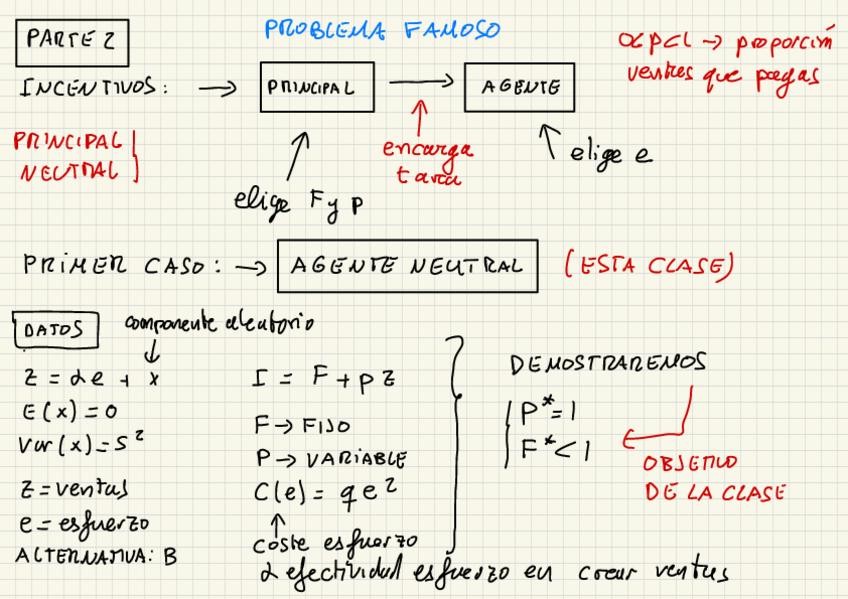 PARTE 2
PROBLEMA FAMOSO
0<p<1 → proporción
ventas que pagas
INCENTIVOS: → PRINCIPAL → AGENTE
PRINCIPAL
NEUTRAL
encarga
tarea
elige e
elige F y P
PRIMER CASO: → AGENTE NEUTRAL (ESTA CLASE)
DATOS
componente aleatorio
Z = αe + x
E(x) = 0
Var(x) = S²
Z = ventas
e = esfuerzo
ALTERNATIVA: B
I = F + p Z
F → FIJO
P → VARIABLE
C(e) = q e²
coste esfuerzo
α efectividad esfuerzo en crear ventas
DEMOSTRAREMOS
P* = 1
F* < 1
OBJETIVO
DE LA CLASE